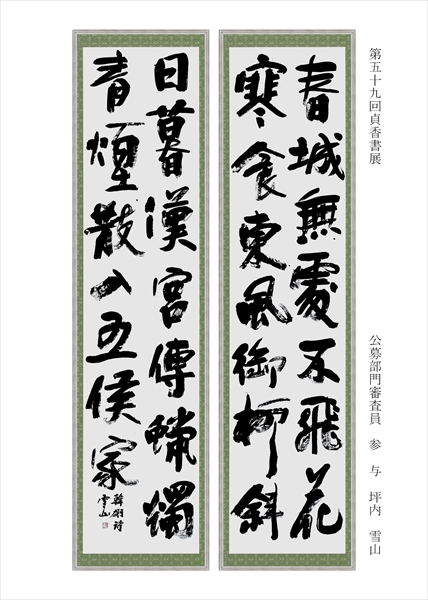 第五十九回貞香書展
公募部門審査員 参与 坪内 雪山
春城無處不飛花
寒食東風御柳斜
日暮漢宮傳蠟燭
青煙散入五侯家
韓翃詩
雪山